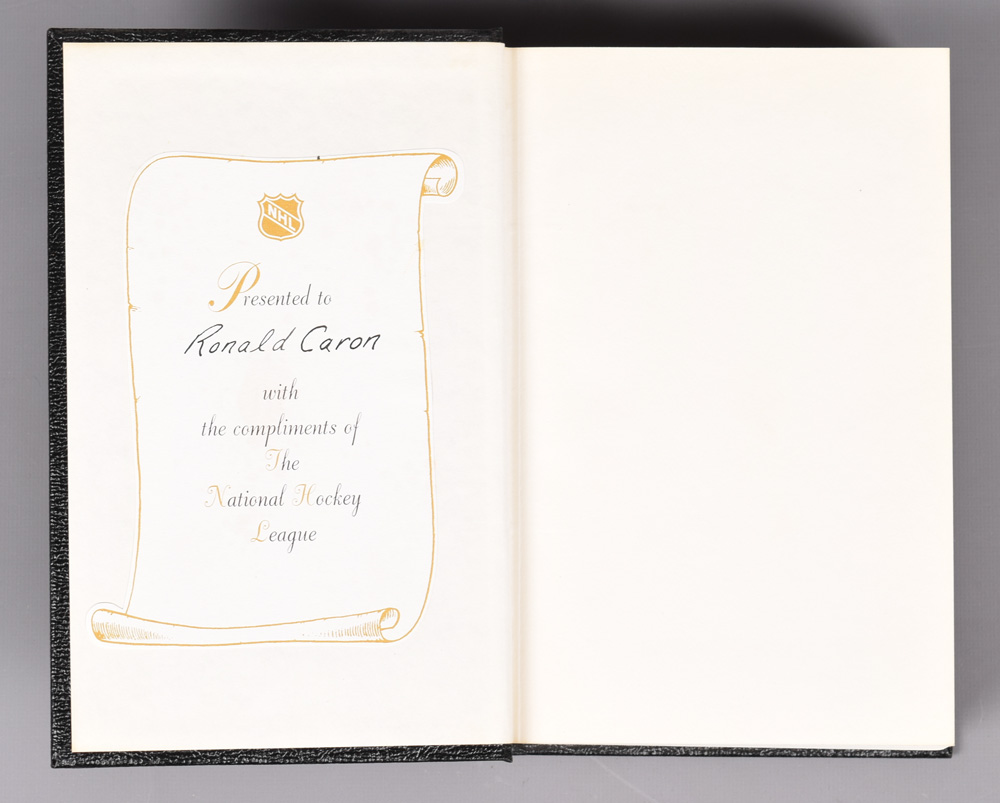 NHL
Presented to
Ronald Caron
with
the compliments of
The
National Hockey
League